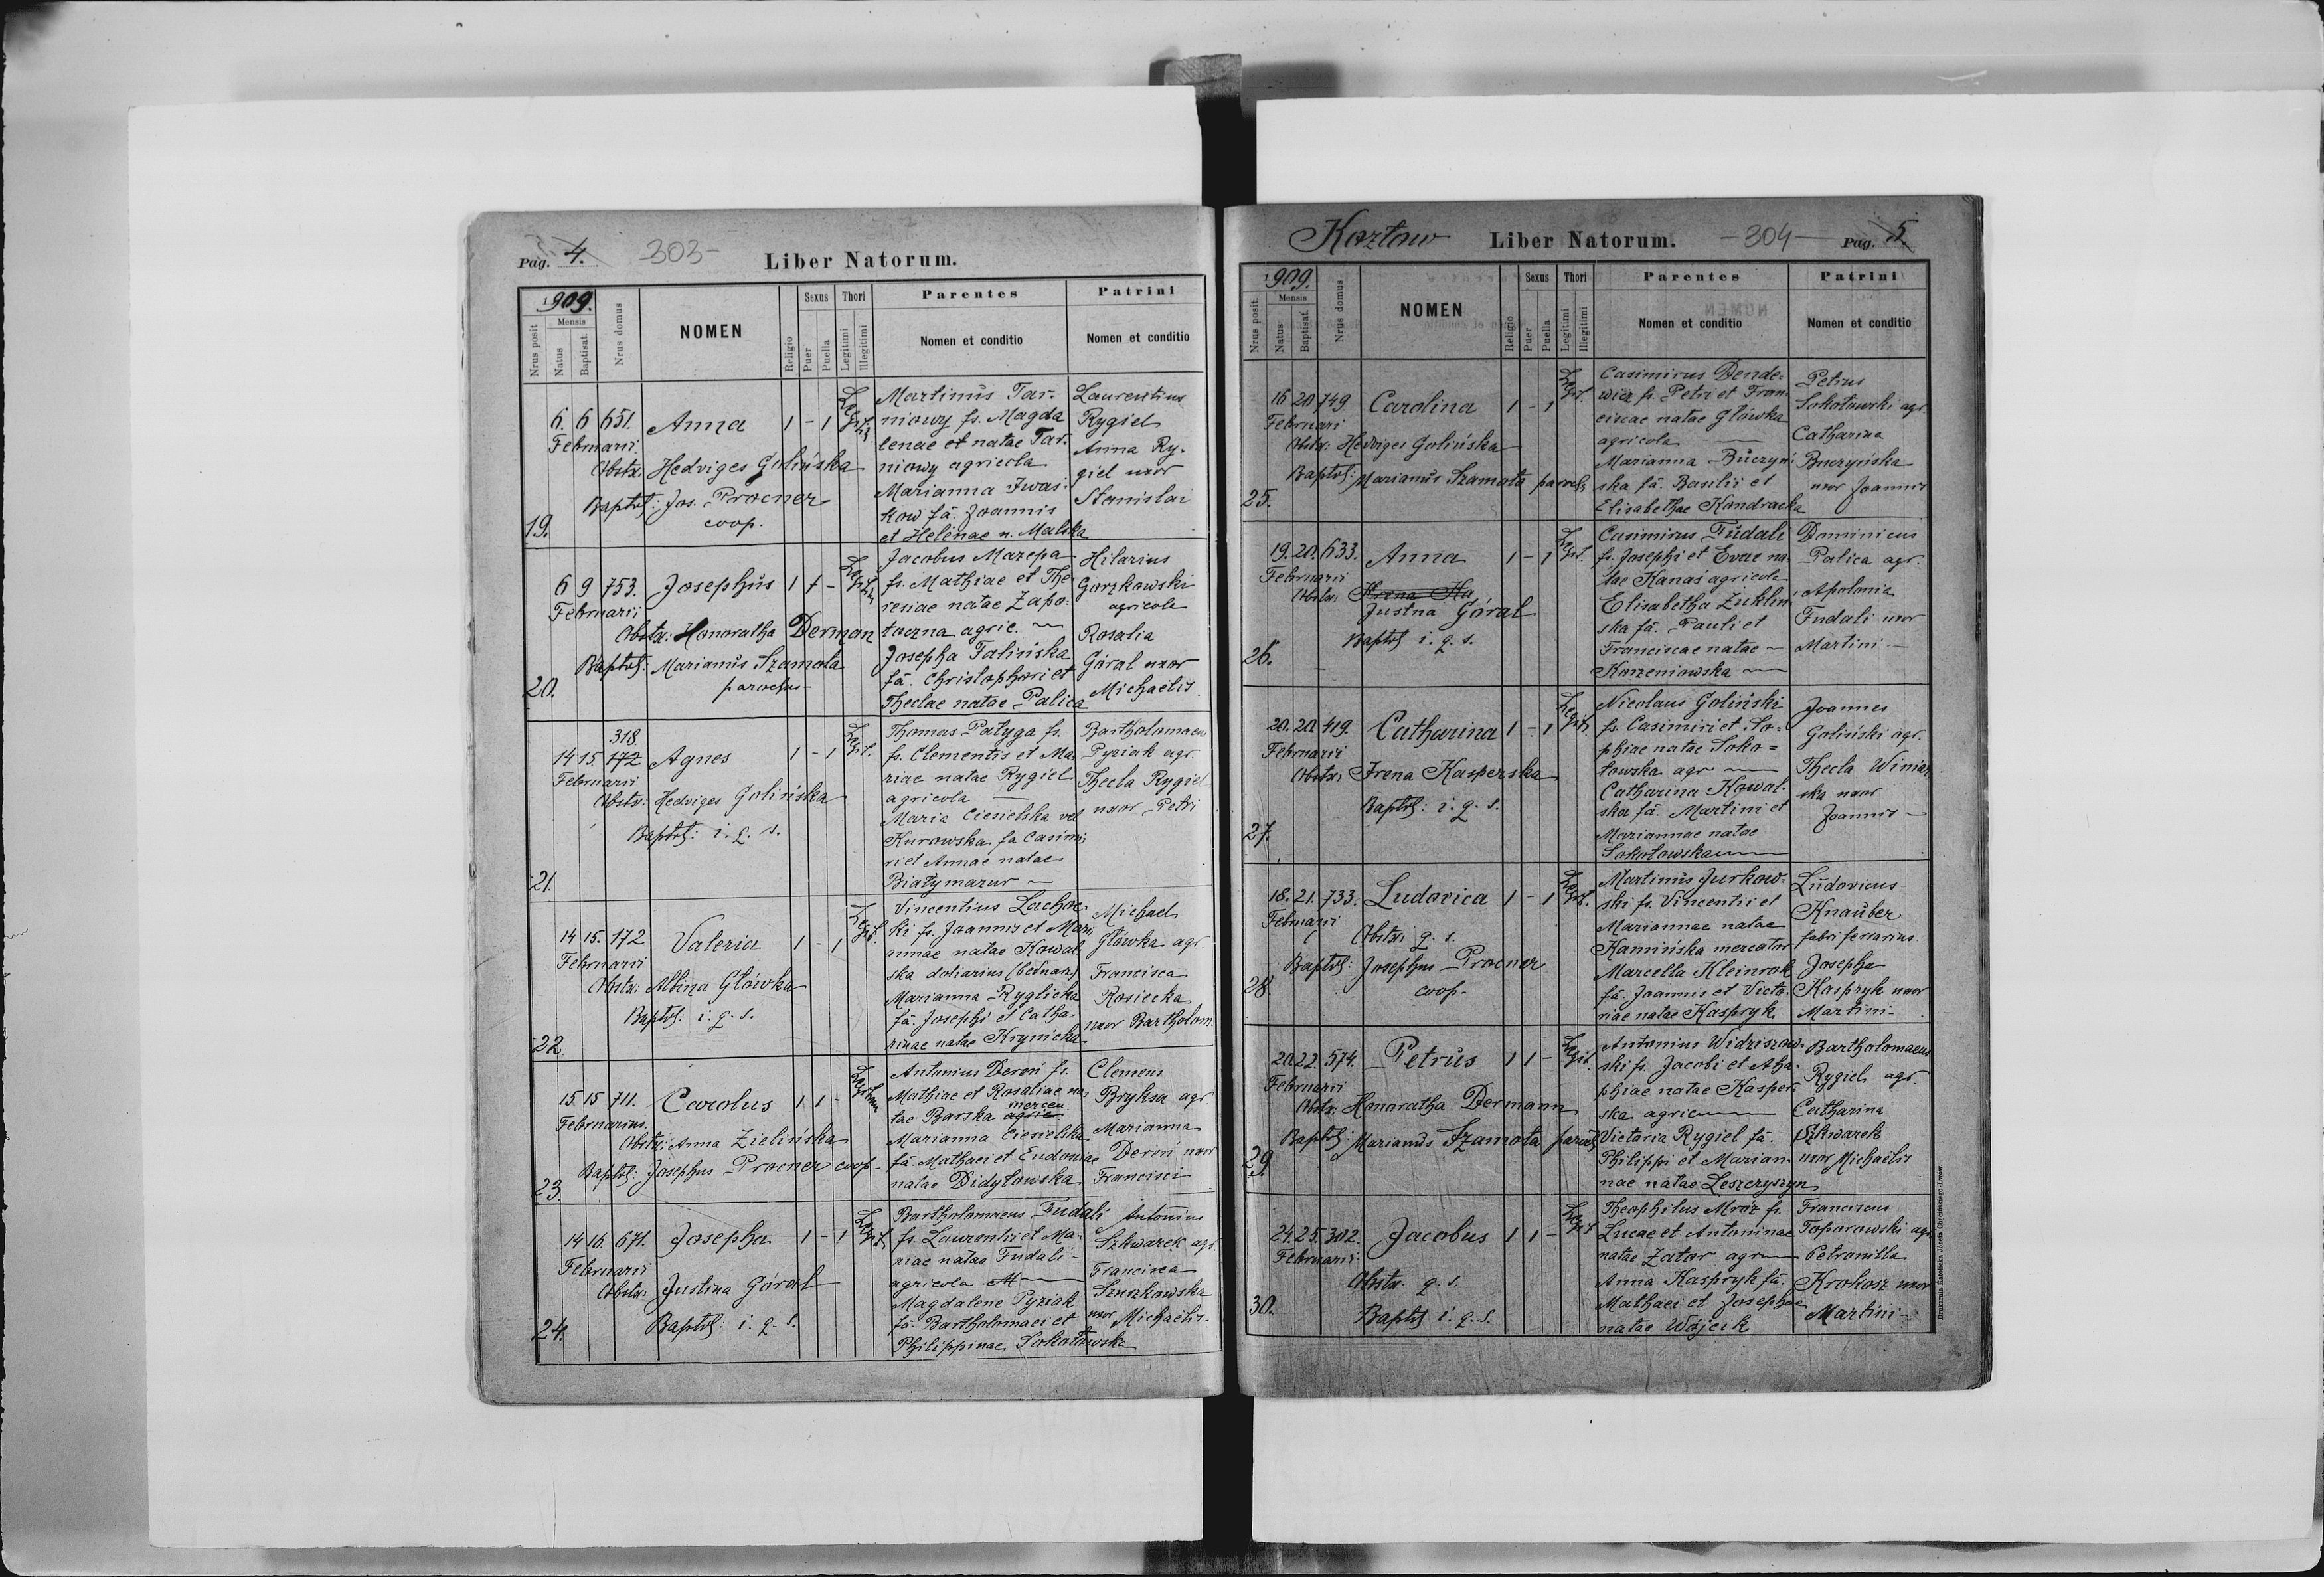 Pag. 4. 303-
Liber Natorum.
1909.
Nrus posit
Mensis
Natus
Baptisat.
Nrus domus
NOMEN
Religio
Sexus
Puer
Puella
Thori
Legitimi
Illegitimi
Parentes
Nomen et conditio
Patrini
Nomen et conditio
19.
6. 6 651. Anna 1 - 1 Legit.
Februarii
Obstx: Hedviges Golińska
Baptsꝭ: Jos. Procner
coop.
Martinus Tar-
niowy fs. Magda
lenae et natae Tar-
niowy agricola
Marianna Iwas-
kow fa. Joannis
et Helenae n. Malska
Laurentius
Rygiel
Anna Ry-
giel uxor
Stanislai
20.
6 9 753. Josephus 1 1 - Legit.
Februarii
Obstx: Honoratha Derman
Baptsꝭ: Marianus Szamota
parochus
Jacobus Mazepa
fs. Mathiae et The-
resiae natae Zapo-
toczna agric.
Josepha Talińska
fa. Christophori et
Theclae natae Palica
Hilarius
Gurzkowski
agricola
Rosalia
Góral uxor
Michaelis
21.
318
14 15 172 Agnes 1 - 1 Legit.
Februarii
Obstx: Hedviges Golińska
Baptsꝭ: i. q. s.
Thomas Patyga fs.
fs. Clementis et Ma-
riae natae Rygiel
agricola
Maria Ciesielska vel
Kurowska fa Casimi-
ri et Annae natae
Białymazur
Bartholomaeus
Pyziak agr.
Thecla Rygiel
uxor Petri
22
14 15. 172 Valeria 1 - 1 Legit.
Februarii
Obstx: Albina Główka
Baptsꝭ: i. q. s.
Vincentius Lachoc-
ki fs. Joannis et Mari
annae natae Kowal-
ska doliarius (bednarz)
Marianna Ryglicka
fa. Josephi et Catha-
rinae natae Krynicka
Michael
Główka agr.
Francisca
Rosiecka
uxor Bartholom.
23.
15 15 711. Carolus 1 1 - Legitimi
Februarius.
Obstx: Anna Zielińska
Baptsꝭ: Josephus Procner coop.
Antonius Dereń fs.
Mathiae et Rosaliae na-
mercen
tae Barska agric
Marianna Ciesielska
fa. Mathaei et Eudoxiae
natae Didyłowska
Clemens
Bryksa agr
Marianna
Dereń uxor
Francisci
24.
14 16. 671. Josepha 1 - 1 Legit.
Februarii
Obstx: Justina Góral
Baptsꝭ: i. q. s.
Bartholomaeus Fudali
fs. Laurentii et Ma-
riae natae Fudali
agricola
Magdalene Pyziak
fa. Bartholomaei et
Philippinae Sokołowska
Antonius
Szkwarek agr.
Francisca
Szuszkowska
uxor Michaelis
Kozłow
Liber Natorum.
-304- Pag. 5.
1909.
Nrus posit.
Mensis
Natus
Baptisat.
Nrus domus
NOMEN
Religio
Sexus
Puer
Puella
Thori
Legitimi
Illegitimi
Parentes
Nomen et conditio
Patrini
Nomen et conditio
25.
16 20 749 Carolina 1 - 1 Legit.
Februari
Obstx: Hedviges Golińska
Baptsꝭ: Marianus Szamota paroch
Casimirus Dende-
wicz fs. Petri et Fran-
ciscae natae Główka
agricola
Marianna Buczyń-
ska fa. Basilii et
Elisabethae Kondracka
Petrus
Sokołowski agr.
Catharina
Buczyńska
uxor Joannis
26.
19. 20. 633. Anna 1 - 1 Legit.
Februarii
Obstx: Irena Ka
Justna Góral
Baptsꝭ i. q. s.
Casimirus Fudali
fs. Josephi et Evae na-
tae Kanaś agricola
Elisabetha Zuklin-
ska fa. Pauli et
Franciscae natae
Korzeniowska
Dominicus
Palica agr.
Apolonia
Fudali uxor
Martini
27.
20. 20. 419. Catharina 1 - 1 Legit.
Februarii
Obstx: Irena Kasperska
Baptsꝭ: i. q. s.
Nicolaus Goliński
fs. Casimiri et So-
phiae natae Soko-
łowska agr
Catharina Kowal-
ska fa. Martini et
Mariannae natae
Sokołowska
Joannes
Goliński agr.
Thecla Winiar
ska uxor
Joannis
28.
18. 21. 733. Ludovica 1 - 1 Legit.
Februarii
Obstx: q. s.
Baptsꝭ: Josephus Procner
coop.
Martinus Jurkow-
ski fs. Vincentii et
Mariannae natae
Kamińska mercator
Marcella Kleinrok
fa. Joannis et Victo-
riae natae Kaspryk
Ludovicus
Knauber
fabri ferrarius
Josepha
Kaspryk uxor
Martini
29
20. 22. 574. Petrus 1 1 - Legit.
Februarii
Obstx: Honoratha Dermann
Baptsꝭ: Marianus Szamota paroch
Antonius Widziszow-
ski fs. Jacobi et Aha-
phiae natae Kasper-
ska agric
Victoria Rygiel fa.
Philippi et Marian-
nae natae Leszczyszyn
Bartholomaeus
Rygiel agr.
Catharina
Szkwarek
uxor Michaelis
30.
24. 25. 302. Jacobus 1 1 - Legit
Februarii
Obstx. q. s.
Baptsꝭ i. q. s.
Theophilus Mróz fs.
Lucae et Antoninae
natae Zator agr
Anna Kaspryk fa.
Mathaei et Josephae
natae Wójcik
Franciscus
Toporowski agr
Petronilla
Krokosz uxor
Martini
Drukarnia Katolicka Józefa Chęcińskiego Lwów.